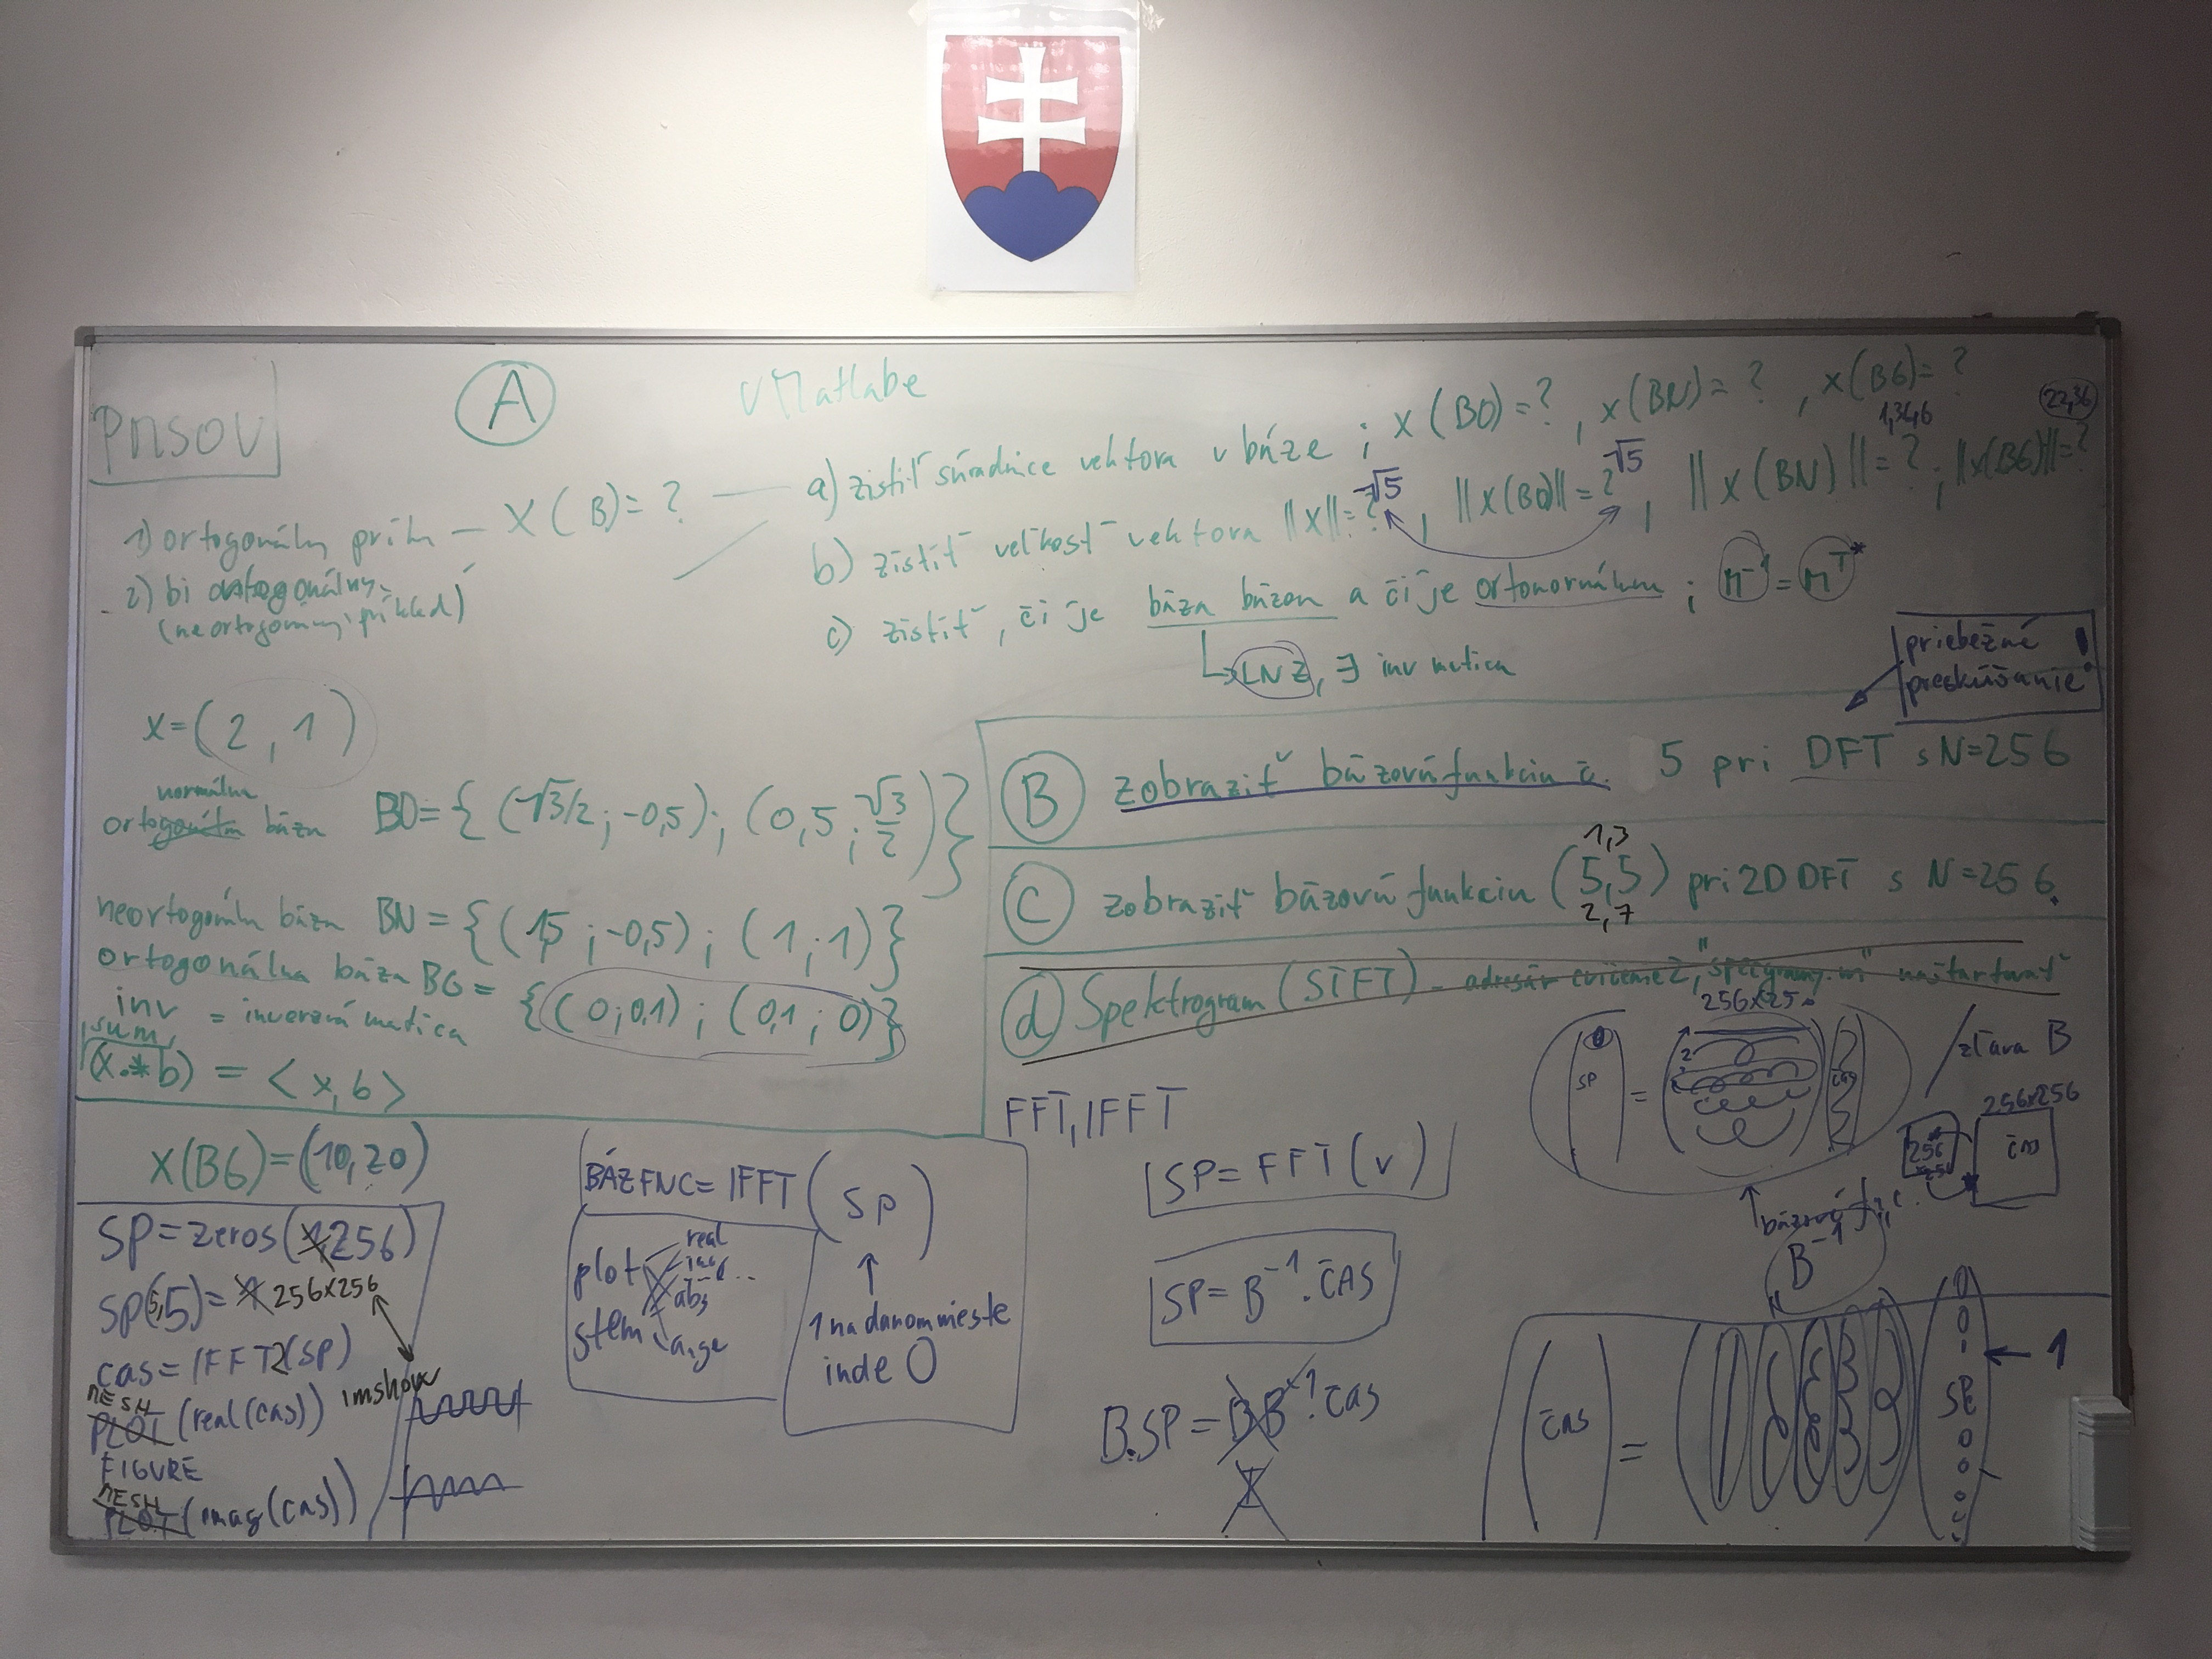 PNSOV
A
v Matlabe
1) ortogonálny prík – X(B)=? — a) zistiť súradnice vektora v báze ; x(BO)=? , x(BN)=? , x(BG)=?
2) bi ortogonálny
(neortogonálny príklad)
b) zistiť veľkosť vektora ||x||=? √5 , ||x(BO)||=? √5 , ||x(BN)||=? 1,346 ; ||x(BG)||=? 22,36
c) zistiť, či je báza bázou a či je ortonormálna ; M⁻¹=Mᵀ*
LNZ, ∃ inv matica
priebežné
preskúšanie !
x=(2, 1)
normálna
ortogonálna báza BO={(√3/2; -0,5); (0,5; √3/2)}
neortogonálna báza BN={(1,5 ; -0,5) ; (1 ; 1)}
ortogonálna báza BG={(0;0,1) ; (0,1 ; 0)}
inv = inverzná matica
sum
(x.*b) = <x,b>
x(BG)=(10,20)
B zobraziť bázovú funkciu č. 5 pri DFT s N=256
1,3
C zobraziť bázovú funkciu (5,5) pri 2D DFT s N=256.
2,7
d Spektrogram (STFT) – adresár cvičenie 2, naštartovať
256x25
SP = čas
zľava B
256x256
256
čas
bázové
B⁻¹
FFT, IFFT
SP = FFT(v)
SP= B⁻¹ . ČAS
B.SP = B B⁻¹. čas
I
BÁZ FNC= IFFT (SP)
plot
stem
real
abs
ange
1 na danom mieste
inde 0
SP=zeros(1,256)
SP(5,5)= 1 256x256
cas=IFFT2(SP)
MESH
PLOT (real(cas)) imshow
FIGURE
MESH
PLOT (imag(cas))
ČAS =
0
0
1 ← 1
SP
0
0
0